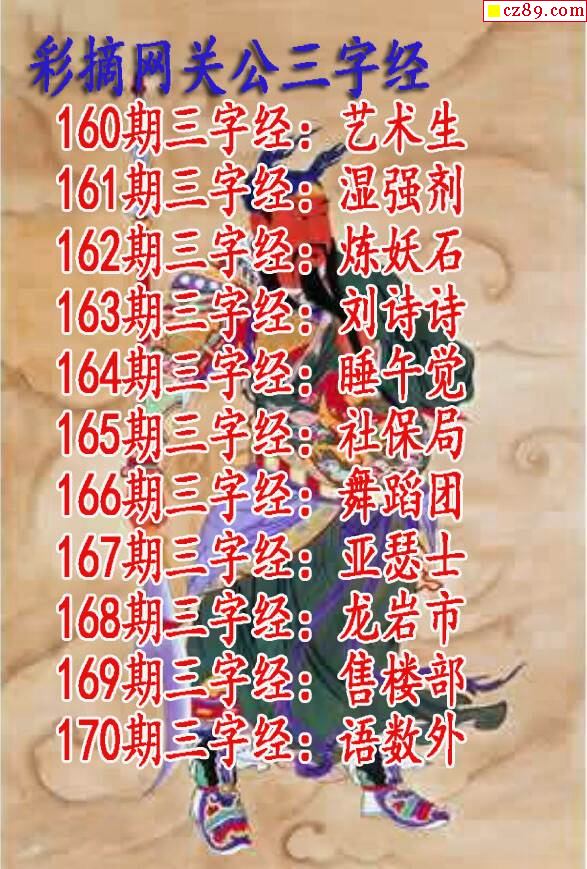 cz89.com
彩摘网关公三字经
160期三字经：艺术生
161期三字经：湿强剂
162期三字经：炼妖石
163期三字经：刘诗诗
164期三字经：睡午觉
165期三字经：社保局
166期三字经：舞蹈团
167期三字经：亚瑟士
168期三字经：龙岩市
169期三字经：售楼部
170期三字经：语数外